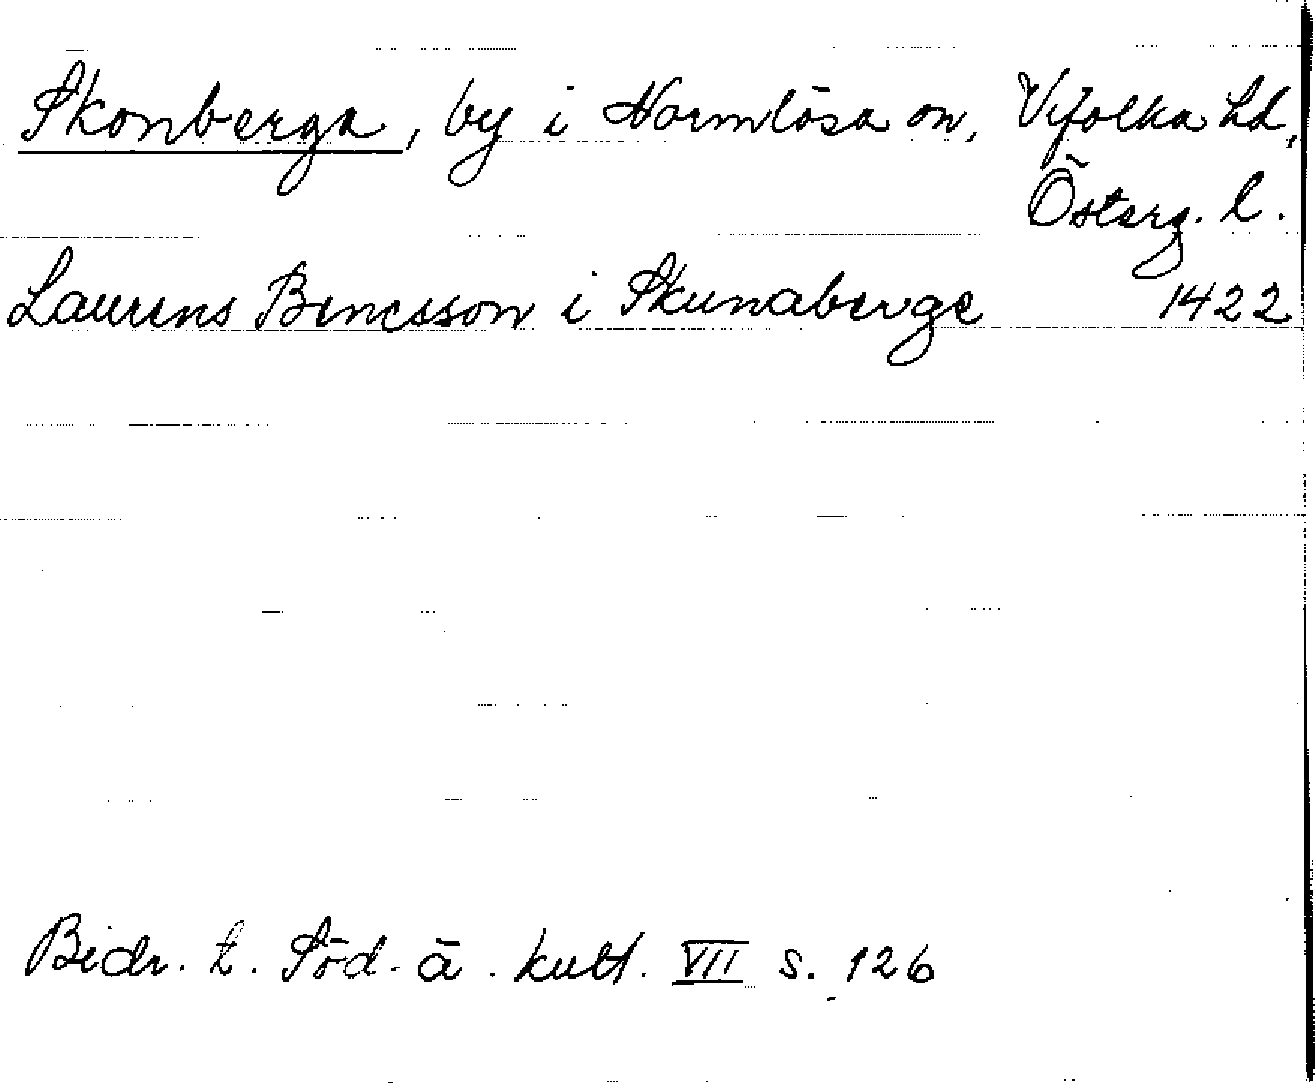 Skonberga, by i Normlösa sn, Vifolka hd,
Österg. l.
Laurens Bencsson i Skunaberge 1422
Bidr. t. Söd. ä. kult. VII s. 126